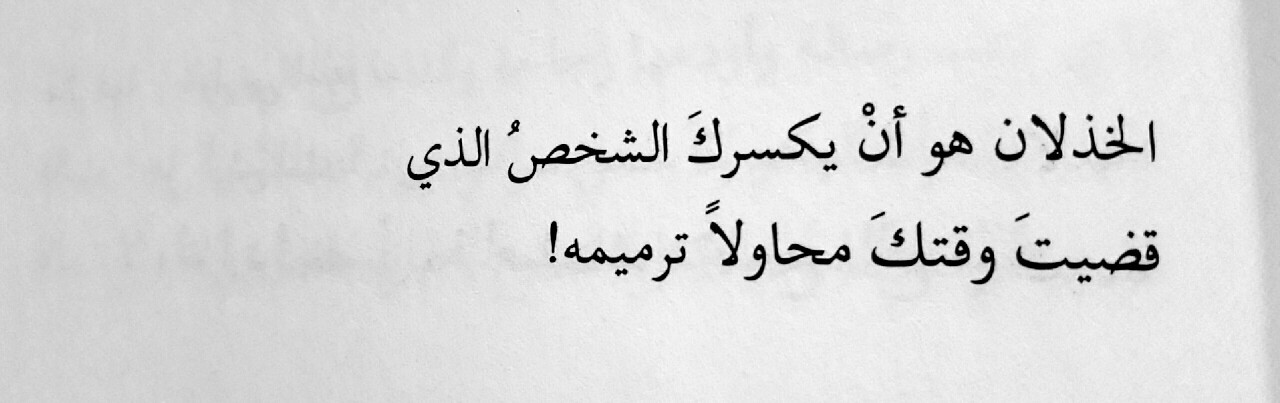 الخذلان هو أنْ يكسركَ الشخصُ الذي
قضيتَ وقتكَ محاولاً ترميمه!